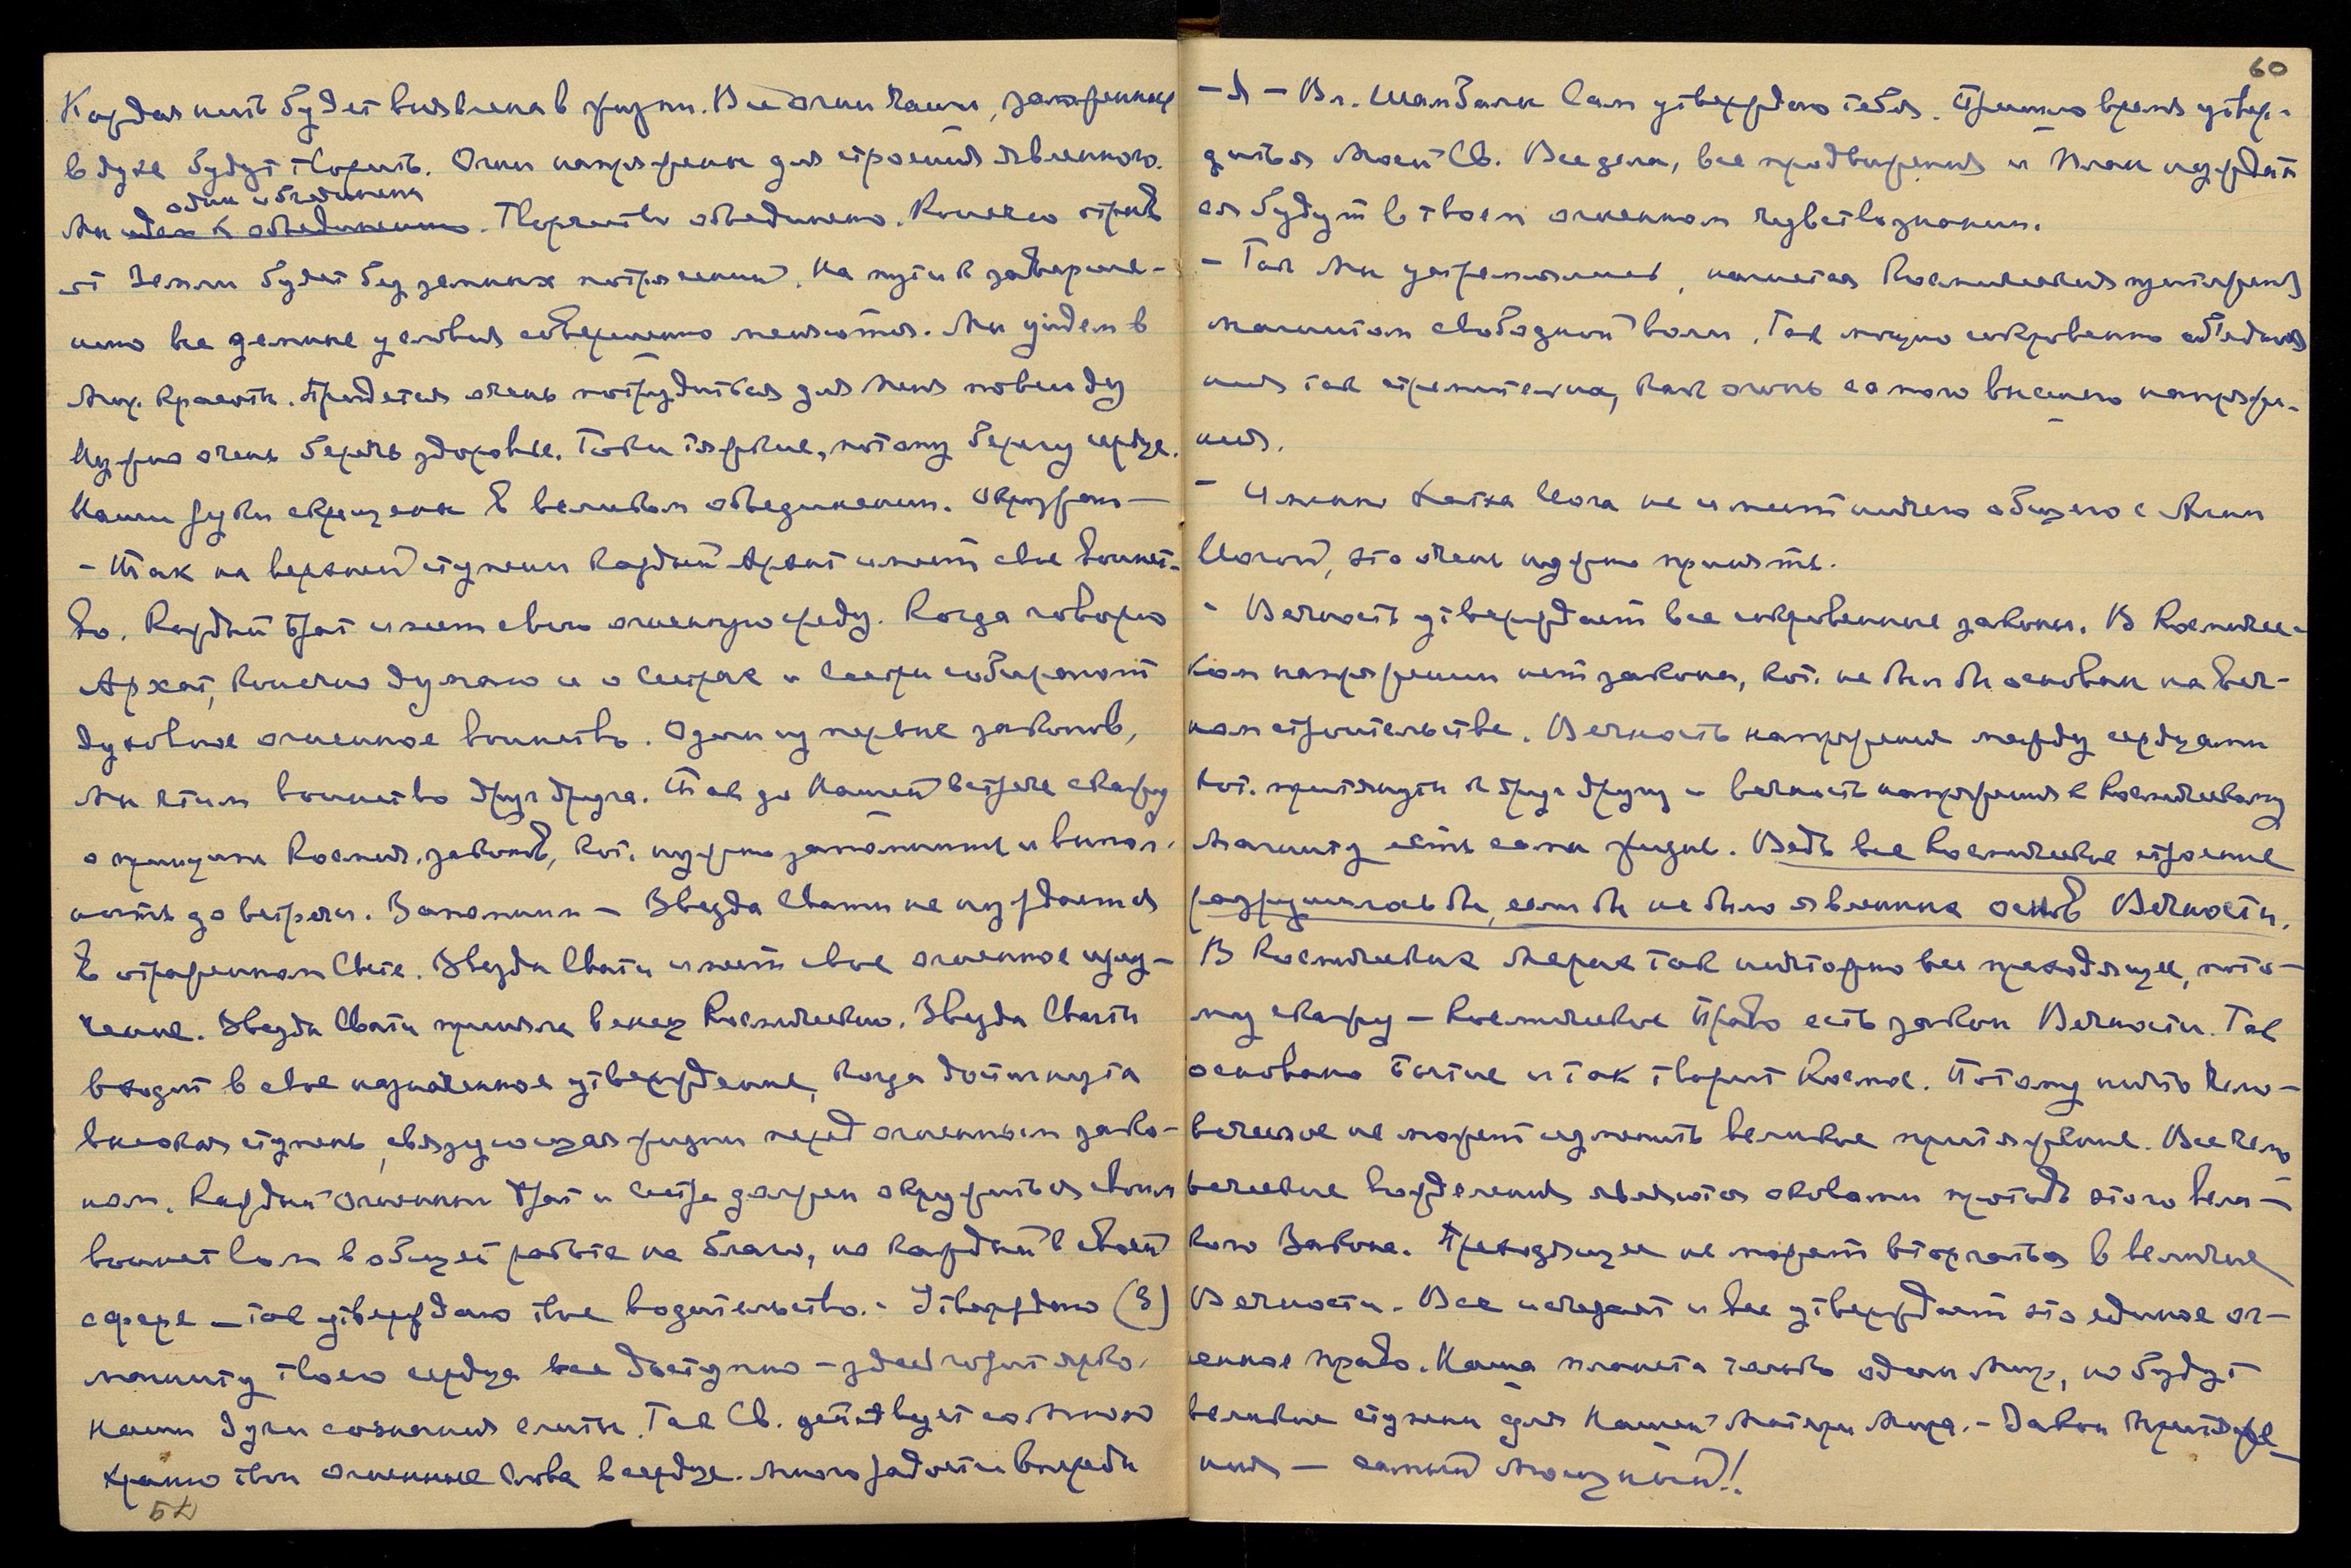 Каждая нить будет выявлена в жизни. Все огни чаши, заложенные
в духе будут творить. Огни напряжены для строения явленного.
одни и объединены
Мы идем к объединению. Творчество объединено. Конечно отрыв
от Земли будет без земных потрясений. На пути к заверше-
нию все земные условия совершенно меняются. Мы уйдем в
Мир. Красоты. Придется очень потрудиться для Меня повсюду
Нужно очень беречь здоровье. Токи тяжкие, потому берегу сердце.
Наши духи скрещены в великом объединении. Окружаю —
- Так на верхней ступени каждый Архат имеет свое воинст-
во. Каждый Брат имеет свою огненную среду. Когда говорю
Архат, конечно думаю и о Сестрах и Сестры собирают
духовное огненное воинство. Один из первых законов,
мы чтим воинство друг друга. Так до Нашей встречи скажу
о принципах Космич. законов, кот. нужно запомнить и выпол.
нить до встречи. Запомним — Звезда Свати не нуждается
в отраженном Свете. Звезда Свати имеет свое огненное излу-
чение. Звезда Свати приняла венец Космический. Звезда Свати
входит в свое назначенное утверждение, когда достигнута
высокая ступень, связующая жизни перед огненным зако-
ном. Каждый огненный Брат и Сестра должен окружиться своим
воинством в общей работе на благо, но каждый в своей
сфере — так утверждаю твое водительство. - Утверждаю (3)
магниту твоего сердца все доступно — здесь горит ярко.
Наши духи сознания слиты. Так Св. действует со Мною
храню твои огненные слова в сердце. Много радости впереди
52
60
- Я — Вл. Шамбалы Сам утверждаю тебя. Пришло время утвер-
диться Моей Св. Все дела, все продвижения и План нуждает
ся будут в твоем огненном чувствознании.
- Так Мы устремляемся, является Космическая притяжения
магнитом свободной воли. Так мощно сокровенно объедине
ния так стремительна, как огонь самого высшего напряже-
ния.
- Именно Хатха Йога не имеет ничего общего с Агни
Йогой, это очень нужно принять.
- Вечность утверждает все сокровенные законы. В Космичес-
ком напряжении нет закона, кот. не был бы основан на веч-
ном строительстве. Вечность напряжения между сердцами
кот. притянуты к друг другу и вечность напряжения к Космическому
Магниту есть сама жизнь. Ведь все Космическое строение
разрушилось бы, если бы не было явленных основ Вечности.
В Космических Мерах так ничтожно все преходящее, пото-
му скажу — Космическое Право есть закон Вечности. Так
основано Бытие и так творит Космос. Потому ничто чело-
веческое не может изменить великое притяжение. Все чело
веческие хождения являются оковами против этого вели-
кого Закона. Преходящее не может вторгаться в величие
Вечности. Все исчезает и все утверждает это единое ог-
ненное право. Наша планета только один Мир, но будут
великие ступени для Нашей Матери Мира. - Закон Притяже-
ния — самый Мощный!!